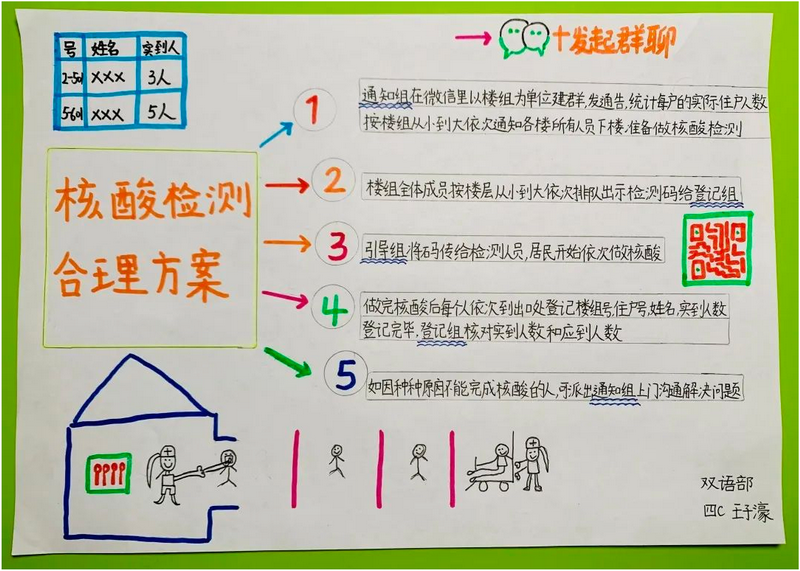 十发起群聊
号 姓名 实到人
2-501 XXX 3人
5-601 XXX 5人
核酸检测
合理方案
1
通知组在微信里以楼组为单位建群,发通告,统计每户的实际住户人数
按楼组从小到大依次通知各楼所有人员下楼,准备做核酸检测
2
楼组全体成员按楼层从小到大依次排队出示检测码给登记组
3
引导组将码传给检测人员,居民开始依次做核酸
4
做完核酸后每个人依次到出口处登记楼组号,住户号,姓名,实到人数
登记完毕,登记组核对实到人数和应到人数
5
如因种种原因不能完成核酸的人,可派出通知组上门沟通解决问题
双语部
四C 王子濠